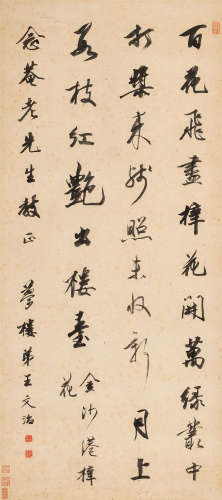 百花飛盡樟花開萬綠叢中
打槳來殘照未收新月上
枝紅艷出樓臺
金沙港樟
花
念菴老先生教正
夢樓弟王文治